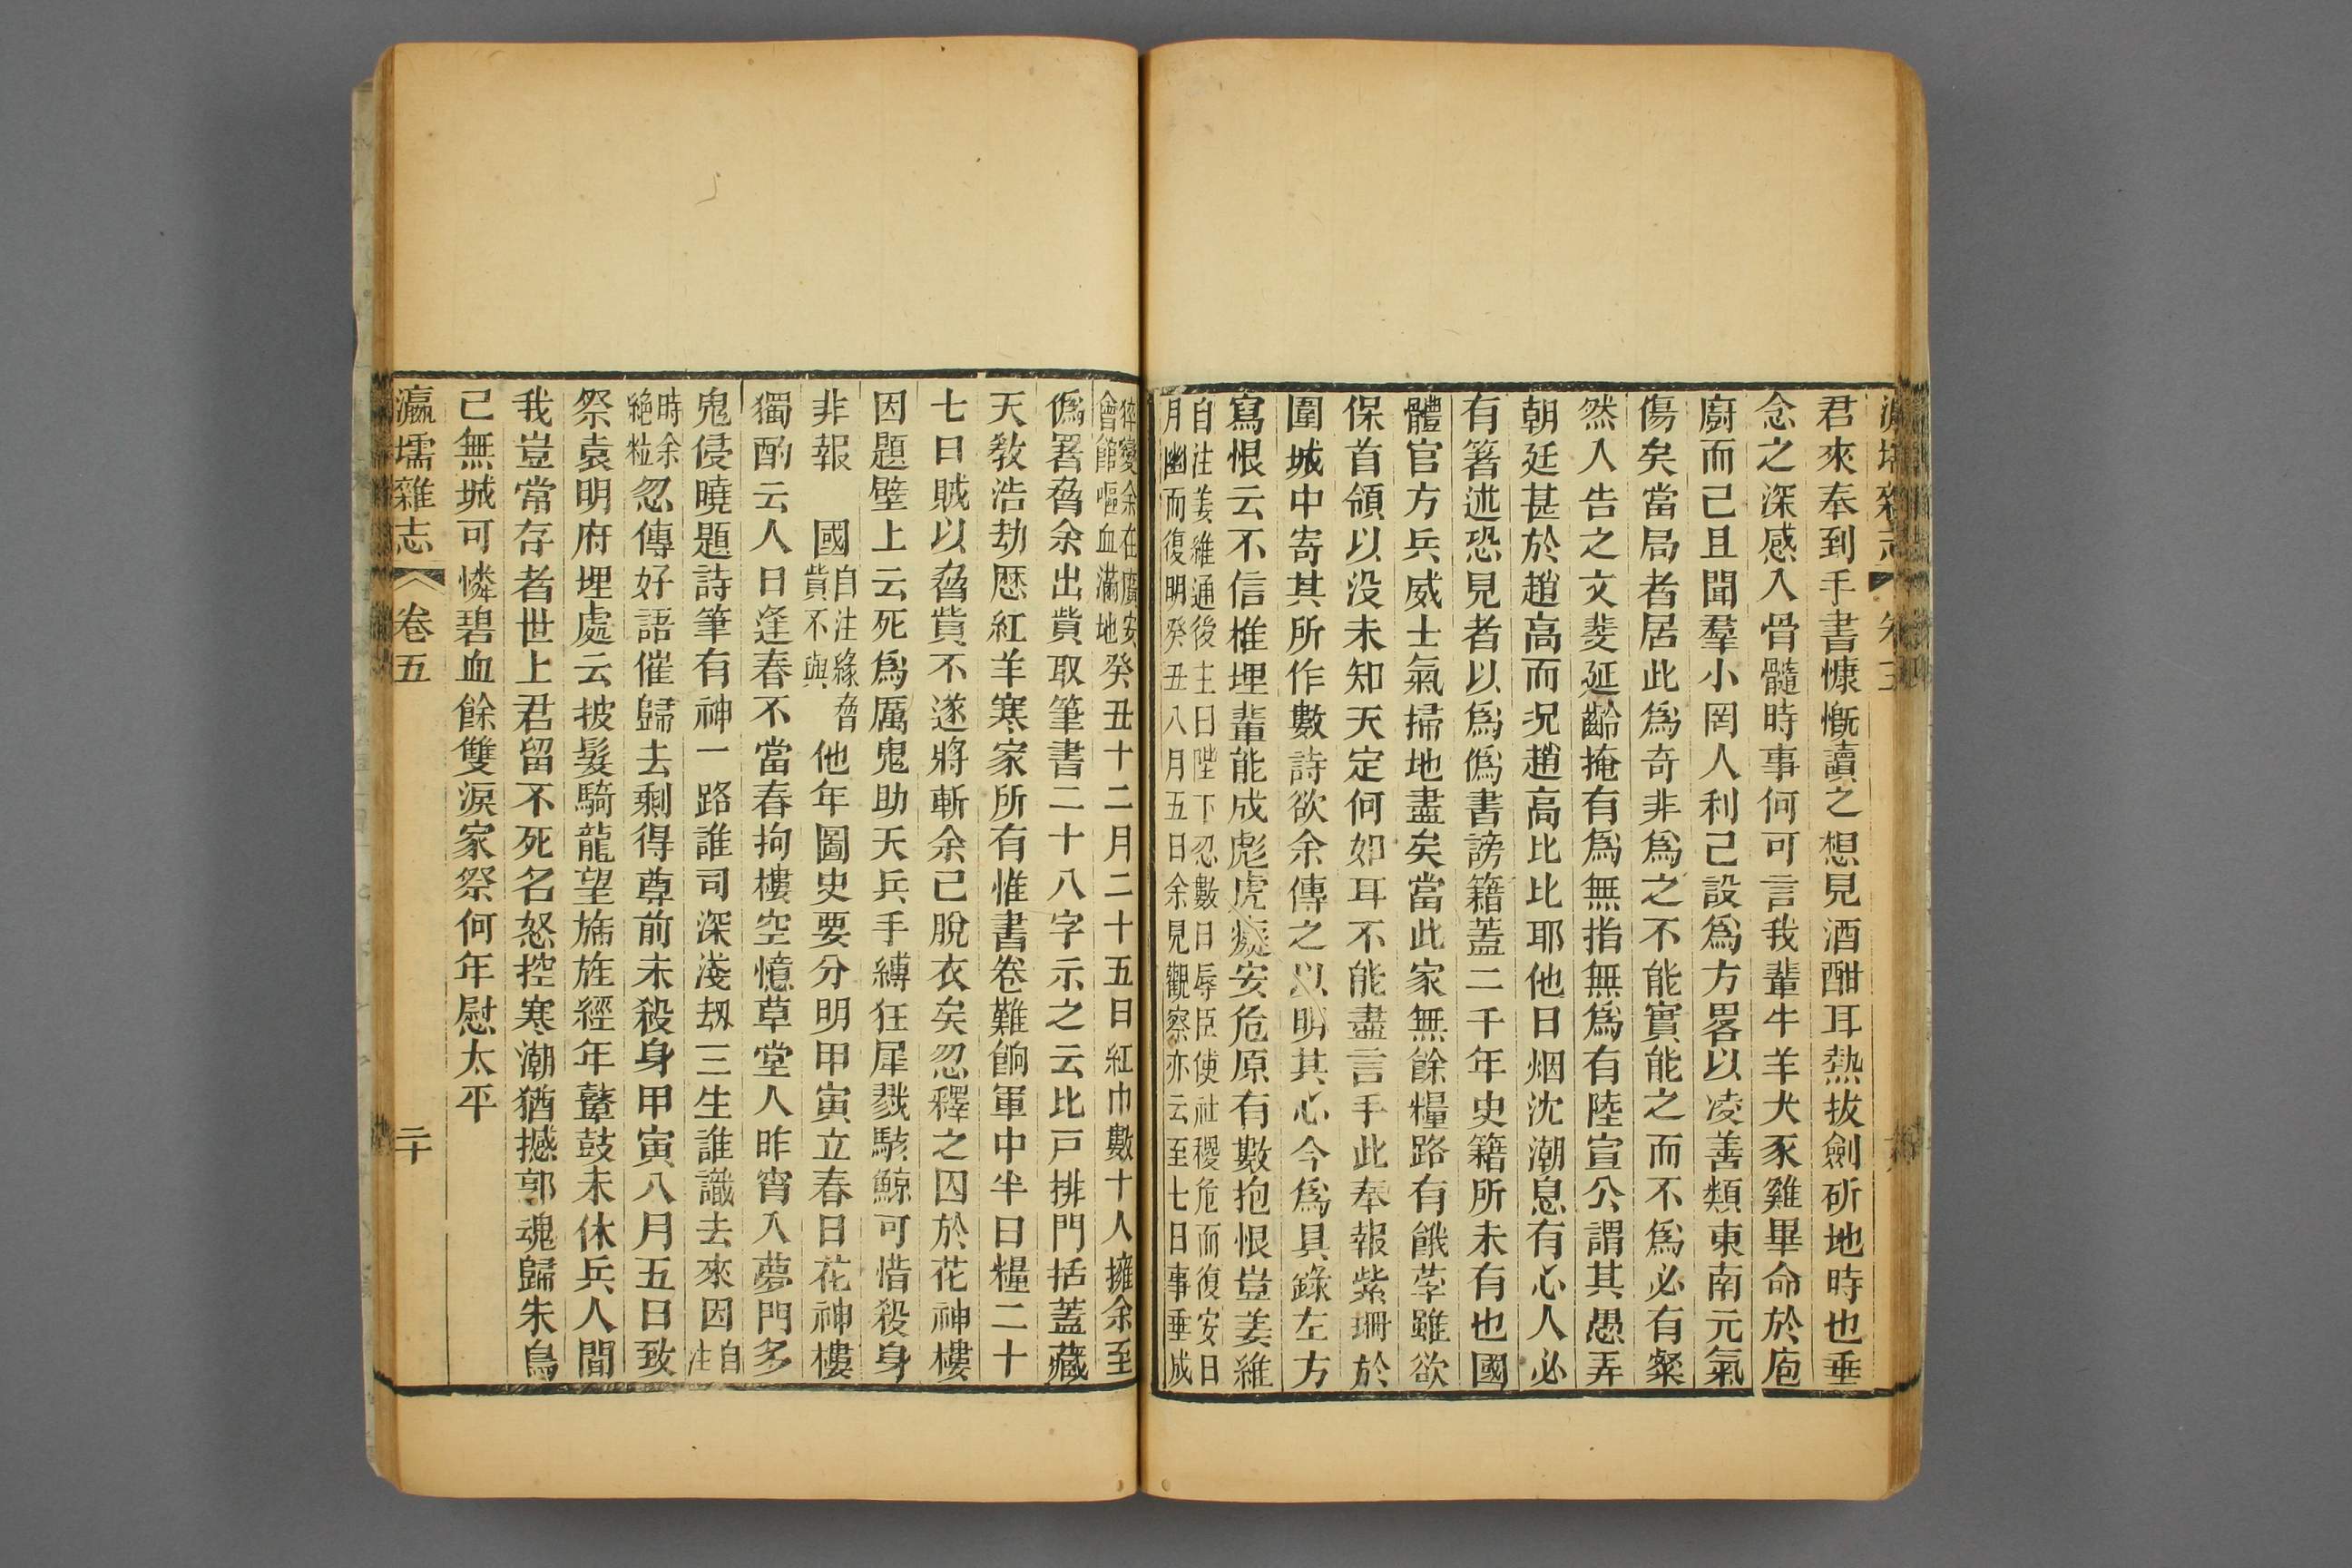 君來奉到手書慷慨讀之想見酒酣耳熱拔劍斫地時也垂
念之深感入骨髓時事何可言我輩牛羊犬豕雞畢命於庖
廚而已且聞羣小罔人利己設爲方畧以凌善類東南元氣
傷矣當局者居此爲奇非爲之不能實能之而不爲必有粲
然人告之文斐延齡掩有爲無指無爲有陸宣公謂其愚弄
朝廷甚於趙高而況趙高比比耶他日烟沈潮息有心人必
有箸述恐見者以爲僞書謗籍蓋二千年史籍所未有也國
體官方兵威士氣掃地盡矣當此家無餘糧路有餓莩雖欲
保首領以没未知天定何如耳不能盡言手此奉報紫珊於
圍城中寄其所作數詩欲余傳之以明其心今爲具錄左方
寫恨云不信椎埋輩能成彪虎癡安危原有數抱恨豈姜維
自注姜維通後主曰陛下忍數日辱臣使社稷危而復安日
月幽而復明癸丑八月五日余見觀察亦云至七日事垂成
猝變余在廣安
會館嘔血滿地癸丑十二月二十五日紅巾數十人擁余至
僞署脅余出貲取筆書二十八字示之云比戸排門括蓋藏
天教浩劫歷紅羊寒家所有惟書卷難餉軍中半日糧二十
七日賊以脅貲不遂將斬余已脫衣矣忽釋之囚於花神樓
因題壁上云死爲厲鬼助天兵手縛狂犀戮駭鯨可惜殺身
非報 國自注緣脅
貲不與他年圖史要分明甲寅立春日花神樓
獨酌云人日逢春不當春拘樓空憶草堂人昨宵入夢門多
鬼侵曉題詩筆有神一路誰司深淺刼三生誰識去來因自
注
時余
絶粒忽傳好語催歸去剩得尊前未殺身甲寅八月五日致
祭袁明府埋處云披髮騎龍望旆旌經年鼙鼓未休兵人間
我豈常存者世上君留不死名怒控寒潮猶撼郭魂歸朱鳥
已無城可憐碧血餘雙淚家祭何年慰太平
瀛壖雜志 卷五 二十